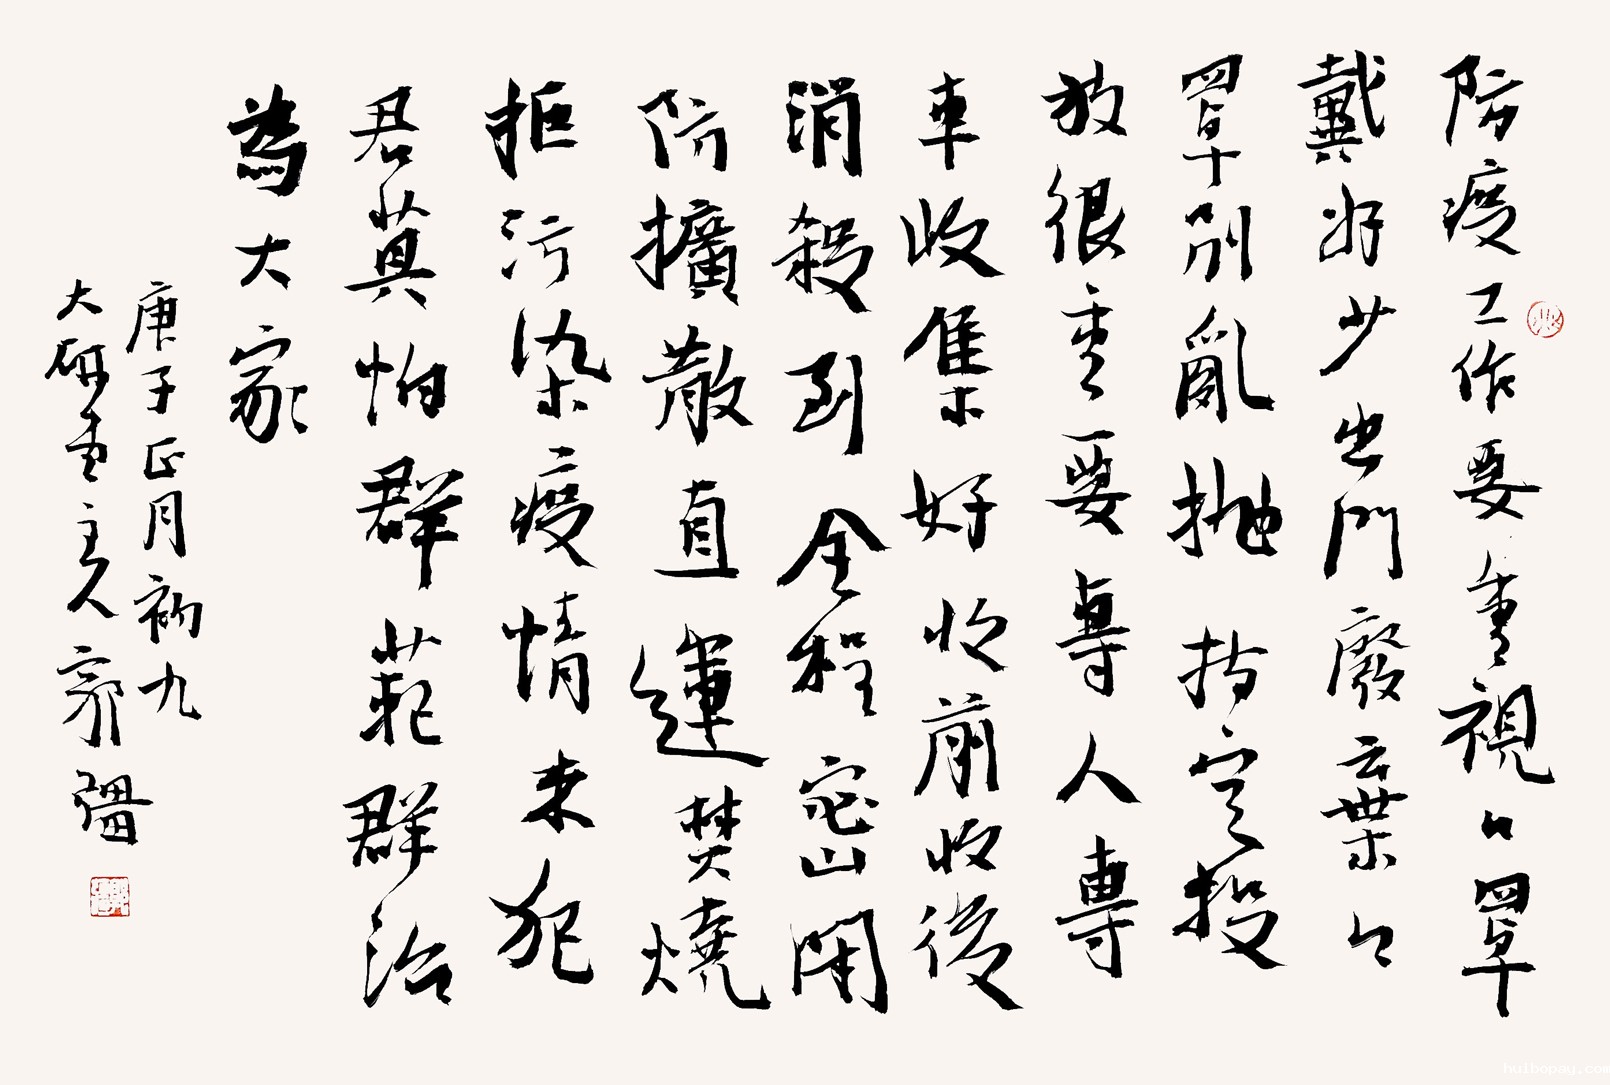 防疫工作要重視口罩
戴好少出門廢棄口
罩別亂拋指定投
放很重要專人專
車收集好收前收後
消殺到全程密閉
防擴散直運焚燒
拒污染疫情未犯
君莫怕群防群治
為大家
庚子正月初九
大研畫主人郭疆
huibopay.com